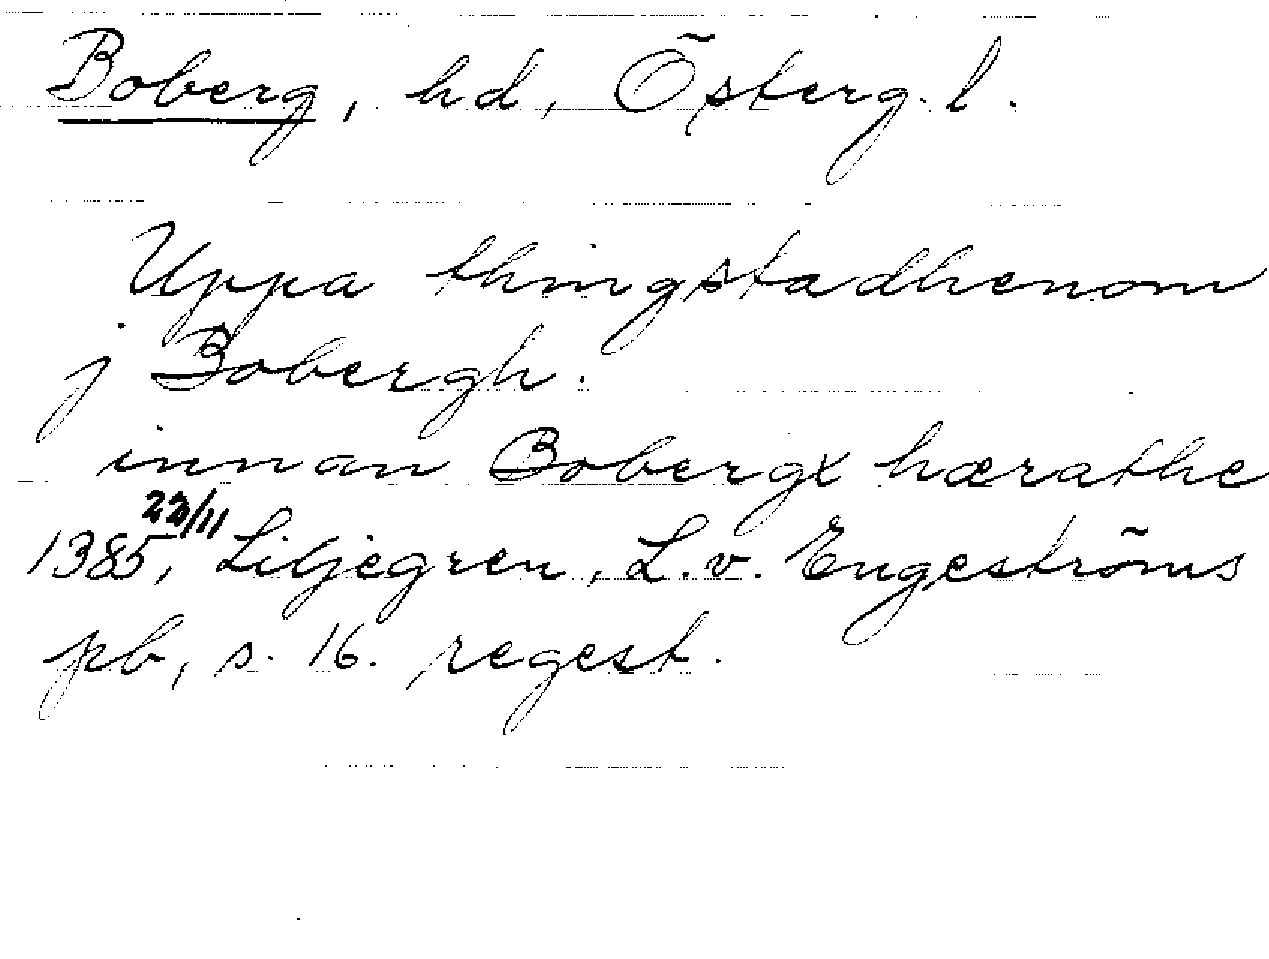 Boberg, hd, Österg.l.
Uppa thingstadhenom
j Bobergh.
innan Bobergx hærathe
1385 22/11, Liljegren, L.v. Engeströms
pb, s. 16. regest.